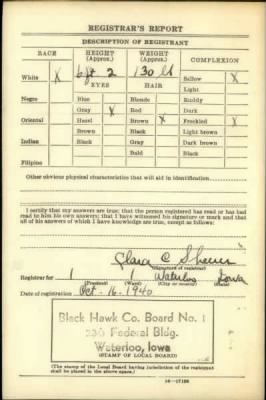 REGISTRAR'S REPORT
DESCRIPTION OF REGISTRANT
RACE HEIGHT (Approx.) WEIGHT (Approx.) COMPLEXION
White X 6 ft 2 130 lb Sallow X
EYES HAIR Light
Negro Blue Blonde Ruddy
Gray X Red Dark
Oriental Hazel Brown X Freckled X
Brown Black Light brown
Indian Black Gray Dark brown
Bald Black
Filipino
Other obvious physical characteristics that will aid in identification
I certify that my answers are true; that the person registered has read or has had
read to him his own answers; that I have witnessed his signature or mark and that
all of his answers of which I have knowledge are true, except as follows:
Clara C
(Signature of registrar)
Registrar for 1 1 Waterloo Iowa
(Precinct) (Ward) (City or county) (State)
Date of registration Oct. 16-1940
Black Hawk Co. Board No. 1
Federal Bldg.
Waterloo, Iowa
(STAMP OF LOCAL BOARD)
(The stamp of the Local Board having jurisdiction of the registrant
shall be placed in the above space.)
16-17105